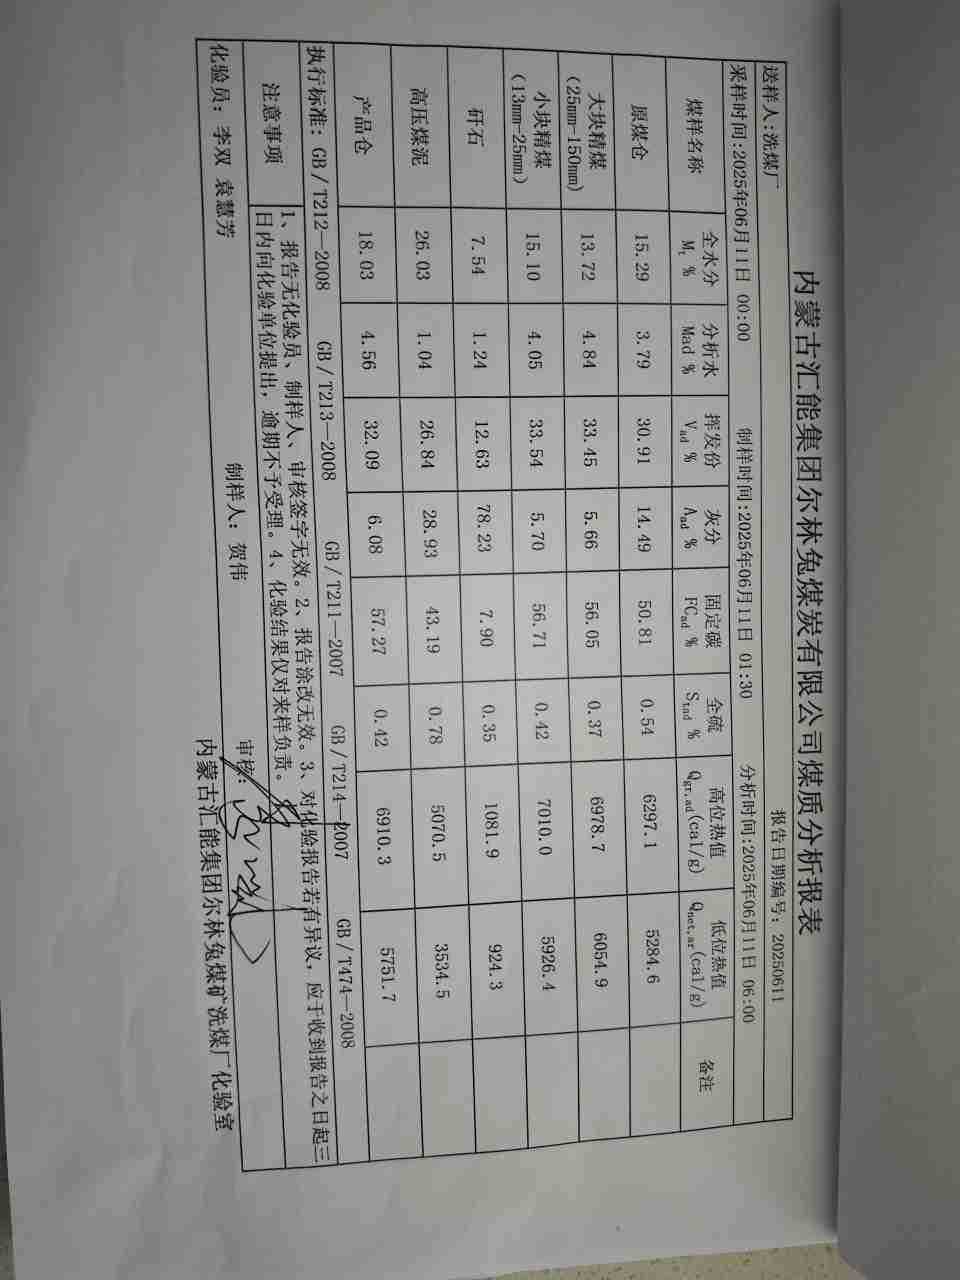 内蒙古汇能集团尔林兔煤炭有限公司煤质分析报表
送样人:洗煤厂 报告日期编号: 20250611
采样时间:2025年06月11日 00:00 制样时间:2025年06月11日 01:30 分析时间:2025年06月11日 06:00
煤样名称 全水分 Mt % 分析水 Mad % 挥发份 Vad % 灰分 Aad % 固定碳 FCad % 全硫 Stad % 高位热值 Qgr,ad(cal/g) 低位热值 Qnet,ar(cal/g) 备注
原煤仓 15.29 3.79 30.91 14.49 50.81 0.54 6297.1 5284.6
大块精煤 (25mm-150mm) 13.72 4.84 33.45 5.66 56.05 0.37 6978.7 6054.9
小块精煤 (13mm-25mm) 15.10 4.05 33.54 5.70 56.71 0.42 7010.0 5926.4
矸石 7.54 1.24 12.63 78.23 7.90 0.35 1081.9 924.3
高压煤泥 26.03 1.04 26.84 28.93 43.19 0.78 5070.5 3534.5
产品仓 18.03 4.56 32.09 6.08 57.27 0.42 6910.3 5751.7
执行标准: GB/T212—2008 GB/T213—2008 GB/T211—2007 GB/T214—2007 GB/T474—2008
注意事项 1、报告无化验员、制样人、审核签字无效。2、报告涂改无效。3、对化验报告若有异议，应于收到报告之日起三
日内向化验单位提出，逾期不予受理。4、化验结果仅对来样负责。
化验员: 李双 袁慧芳 制样人: 贺伟 审核:
内蒙古汇能集团尔林兔煤矿洗煤厂化验室